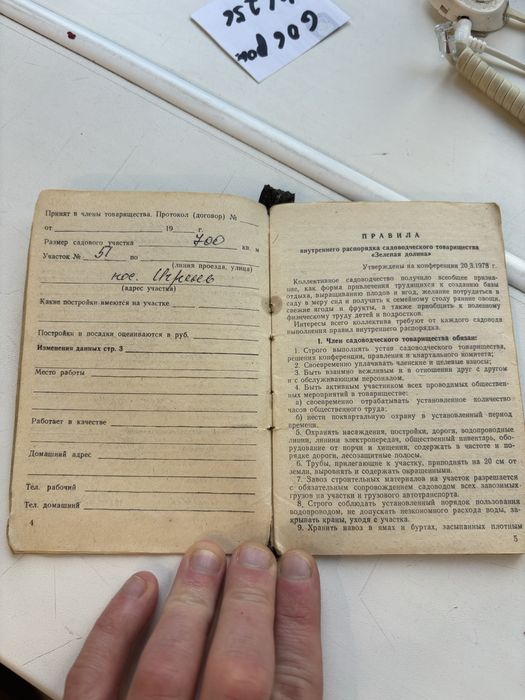 Принят в члены товарищества. Протокол (договор) №
от 19 г.
Размер садового участка 700 кв. м
Участок № 51 по
(линия проезда, улица)
пос.
(адрес участка)
Какие постройки имеются на участке
Постройки и посадки оцениваются в руб.
Изменения данных стр. 3
Место работы
Работает в качестве
Домашний адрес
Тел. рабочий
Тел. домашний
4
ПРАВИЛА
внутреннего распорядка садоводческого товарищества
«Зеленая долина»
Утверждены на конференции 20.3.1978 г.
Коллективное садоводчество получило всеобщее призна-
ние, как форма привлечения трудящихся к созданию базы
отдыха, выращиванию плодов и ягод, желание потрудиться в
саду в меру сил и получить к семейному столу ранние овощи,
свежие ягоды и фрукты, а также приобщить к полезному
физическому труду детей и подростков.
Интересы всего коллектива требуют от каждого садовода
выполнения правил внутреннего распорядка.
1. Член садоводческого товарищества обязан:
1. Строго выполнять устав садоводческого товарищества,
решения конференции, правления и квартального комитета;
2. Своевременно уплачивать членские и целевые взносы;
3. Быть взаимно вежливым и в отношении друг с другом
и с обслуживающим персоналом.
4. Быть активным участником всех проводимых обществен-
ных мероприятий в товариществе:
а) своевременно отрабатывать установленное количество
часов общественного труда;
б) нести поквартальную охрану в установленный период
времени.
5. Охранять насаждения, постройки, дороги, водопроводные
линии, линии электропередач, общественный инвентарь, обо-
рудование от порчи и хищения, содержать в чистоте и по-
рядке дороги, лесозащитные полосы.
6. Трубы, прилегающие к участку, приподнять на 20 см от
земли, выровнять и содержать окрашенными.
7. Завоз строительных материалов на участок разрешается
с обязательным сопровождением садоводом всех завозимых
грузов на участки и грузового автотранспорта.
8. Строго соблюдать установленный порядок пользования
водопроводом, не допускать неэкономного расхода воды, за-
крывать краны, уходя с участка.
9. Хранить навоз в ямах и буртах, засыпанных плотным
5